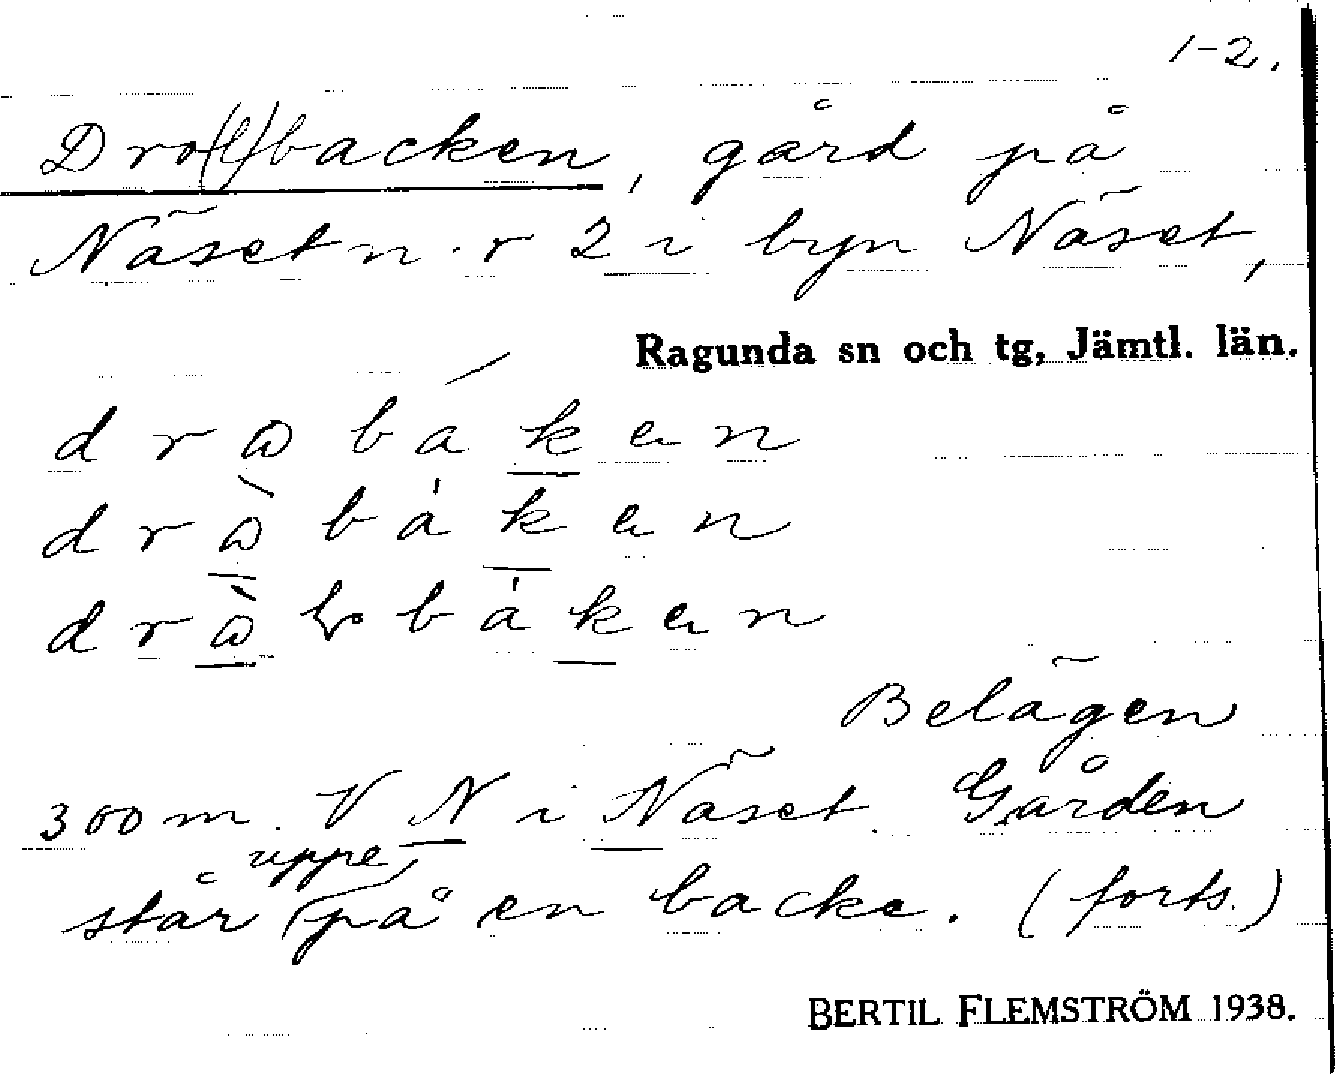 1-2.
Dro(l)backen, gård på
Näset n.r 2 i byn Näset,
Ragunda sn och tg, Jämtl. län.
Belägen
300 m. V N i Näset. Gården
står uppe på en backe. (forts.)
BERTIL FLEMSTRÖM 1938.